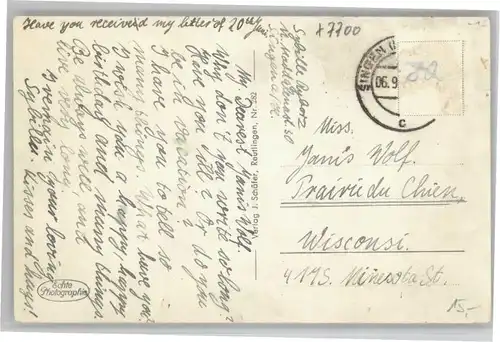 Have you received my letter of 20th June
x 7700
My Dearest Janis Wolf.
Why don't you write so long?
Have you ill? Or do you
be in vacation?
I have you to tell so
many things. What have you
I wish you a happy, happy
birthday and many things.
Be always well and
live very long.
I remain your loving
Sybille. Kisses and hugs!
Echte
Photographie
Verlag J. Schäfer, Reutlingen, Nr. 282
Sybille
Singen a/H.
SINGEN
06.9
c
Miss.
Janis Wolf.
Prairie du Chien,
Wisconsi.
419 S. Minesota St.
15,-